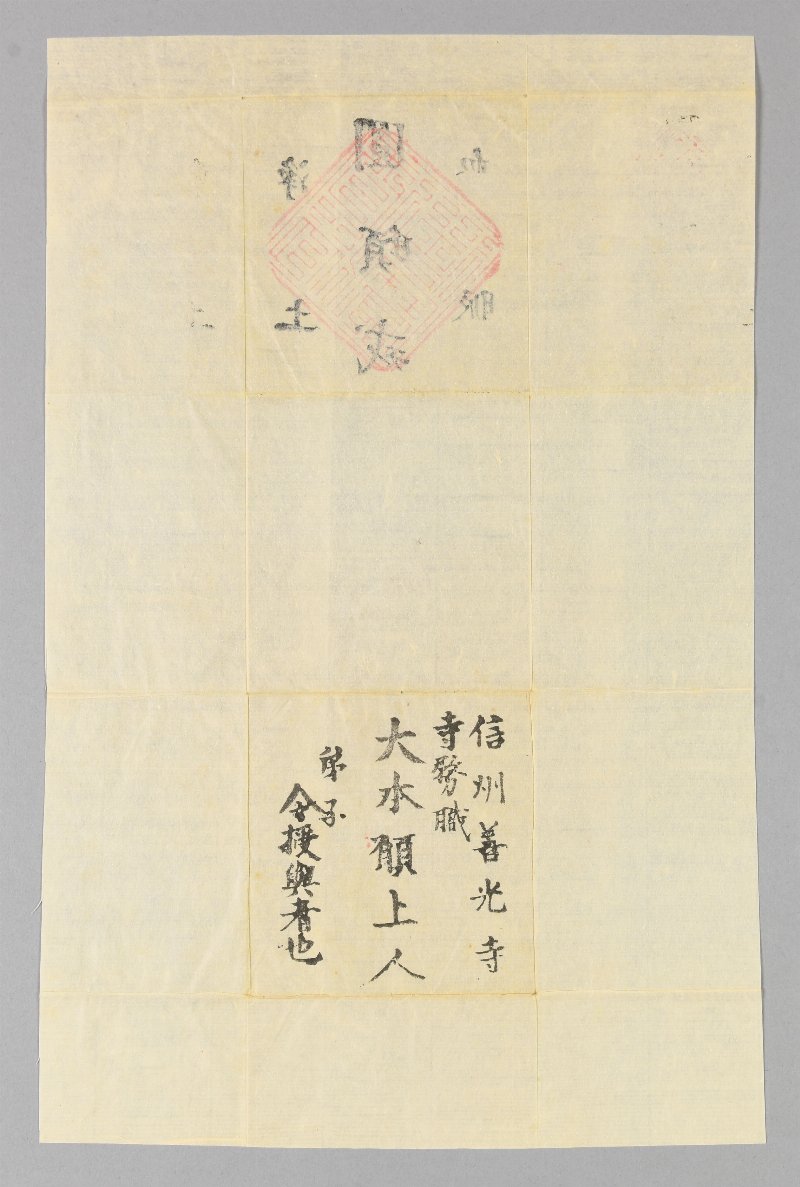 浄土
圓頓戒
血脈
信州善光寺
寺務職
大本願上人
弟子
令授與者也